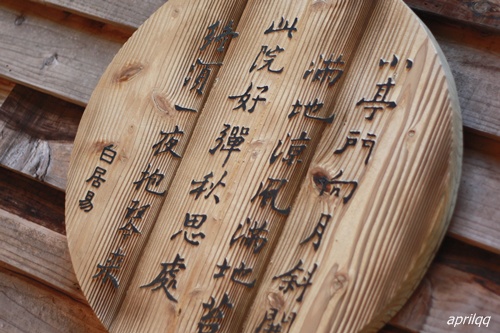 小亭門向月斜開
滿地涼風滿地
此院好彈秋思處
終須一夜抱琴來
白居易
aprilqq